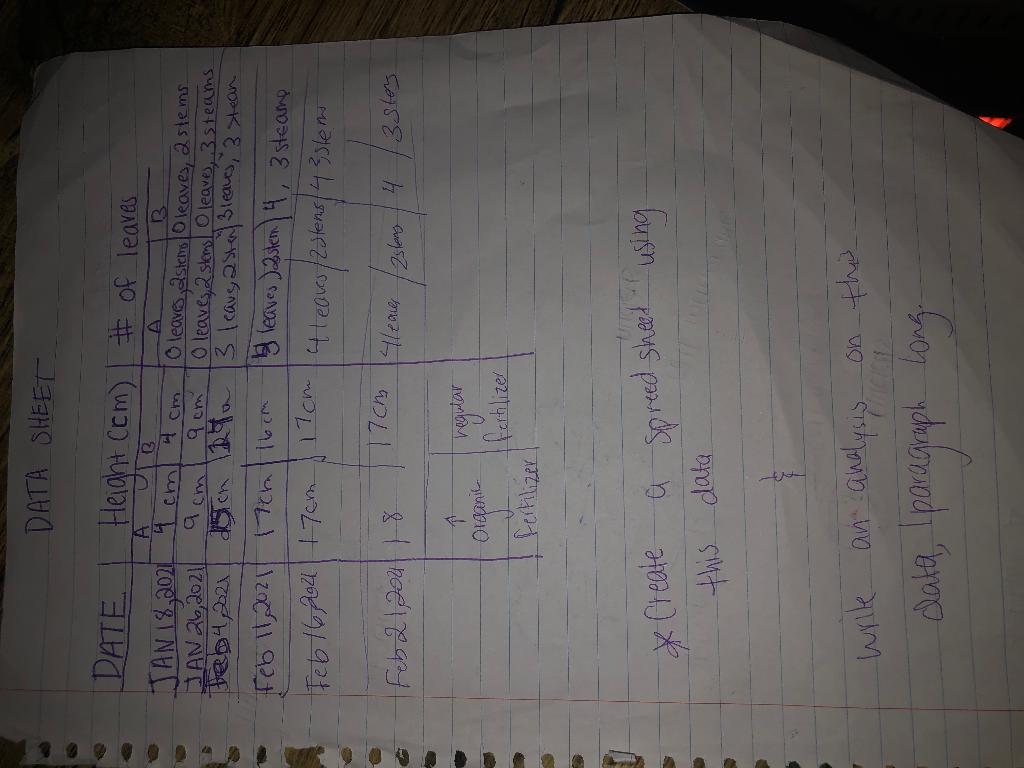 DATA SHEET
DATE Height (cm) # of leaves
A B A B
JAN 18, 2021 4 cm 4 cm 0 leaves, 2 stems 0 leaves, 2 stems
JAN 26, 2021 9 cm 9 cm 0 leaves, 2 stems 0 leaves, 3 steams
Feb 4, 2021 3 leavs, 2 stem 3 leaves, 3 stean
Feb 11, 2021 17 cm 16 cm leaves, 2 stem 4, 3 steamp
Feb 16, 2021 17 cm 17 cm 4 leaves / 2 stems 4 3 stems
Feb 21, 2021 18 17 cm 4 leaves / 2 stems / 4 / 3 stems
↑
organic regular
fertilizer fertilizer
* Create a Spreed sheet using
this data
&
write an analysis on this
data, 1 paragraph long.